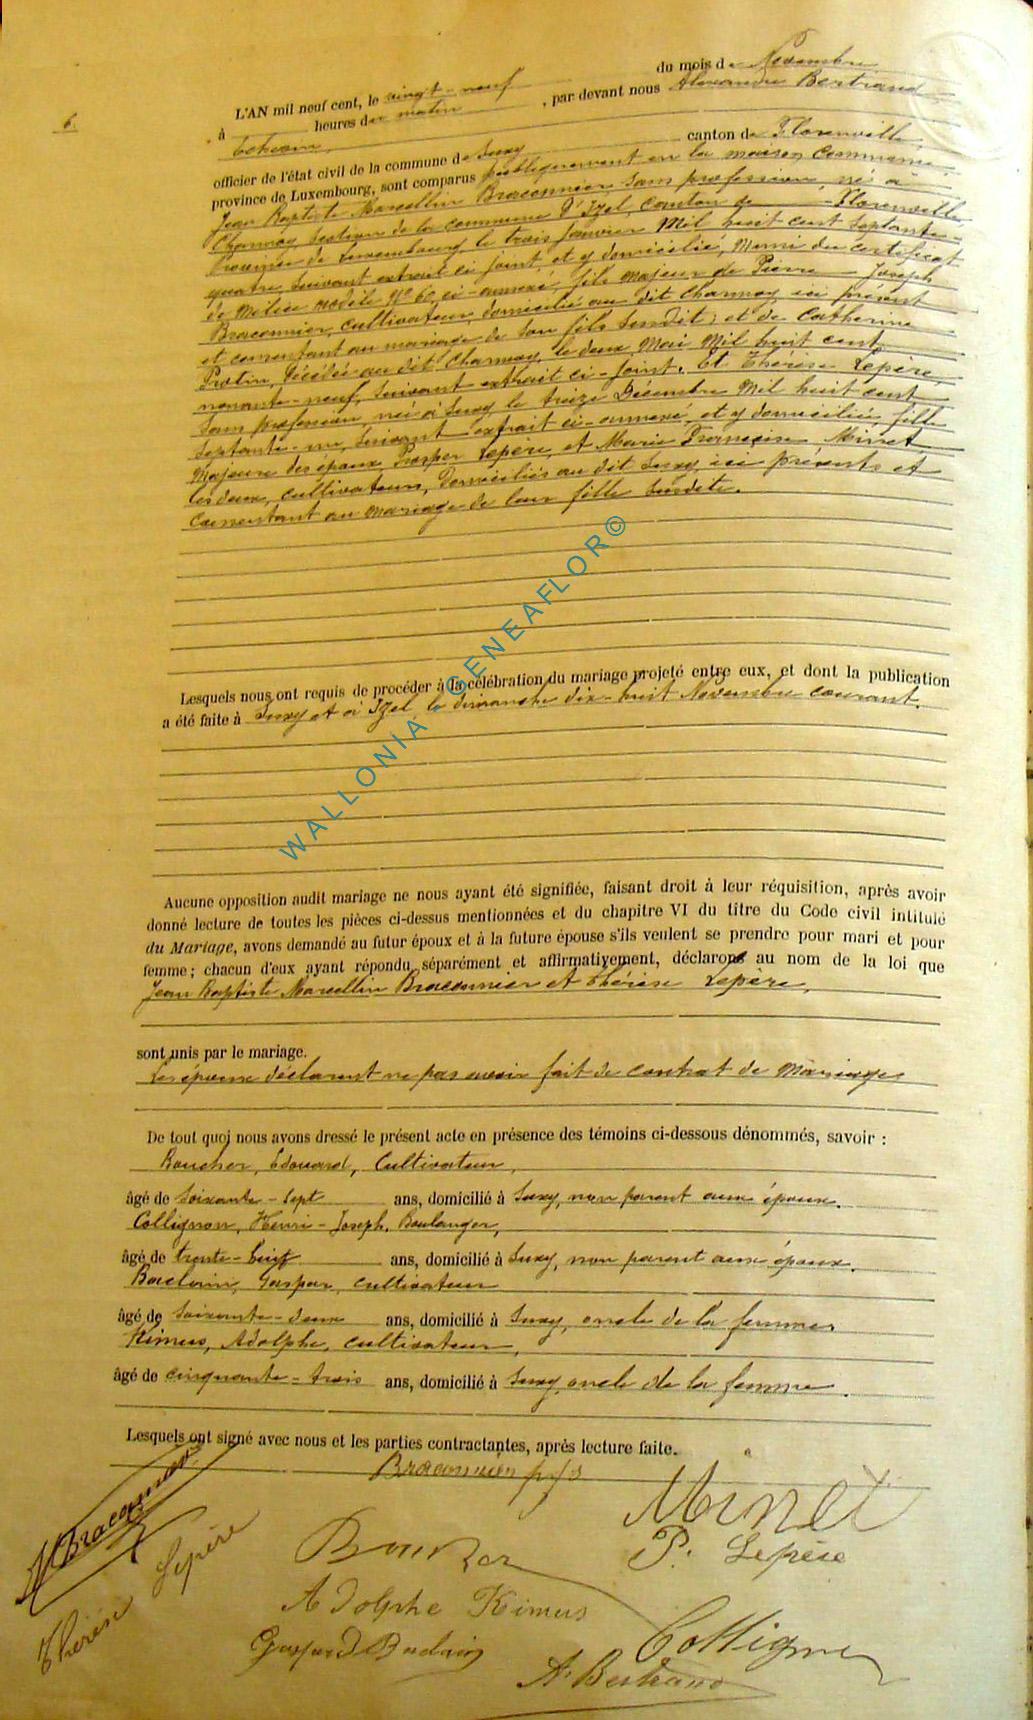 6.
L'AN mil neuf cent, le vingt-neuf du mois de Novembre
à heures du matin, par devant nous Alexandre Bertrand
Echevin,
officier de l'état civil de la commune de Suxy canton de Florenville,
province de Luxembourg, sont comparus publiquement en la maison commune
Jean Baptiste Marcellin Braconnier sans profession, né à
Charmoy, section de la commune d'Izel, canton de Florenville,
Province de Luxembourg le trois Janvier Mil huit cent septante-
quatre, suivant extrait ci-joint, et y domicilié, Muni du certificat
de Milice modèle N° 60, ci-annexé, fils majeur de Pierre-Joseph
Braconnier, cultivateur, domicilié au dit Charmoy, ici présent
et consentant au mariage de son fils susdit; et de Catherine
Protin, décédée au dit Charmoy, le deux Mai Mil huit cent
nonante-neuf, suivant extrait ci-joint. Et Thérèse Lepère,
sans profession, née à Suxy, le treize Décembre Mil huit cent
septante-un, suivant extrait ci-annexé, et y domiciliée, fille
majeure des époux Prosper Lepère, et Marie Françoise Minet
les deux, cultivateurs, domiciliés au dit Suxy, ici présents et
consentant au mariage de leur fille susdite.
Lesquels nous ont requis de procéder à la célébration du mariage projeté entre eux, et dont la publication
a été faite à Suxy et à Izel, le dimanche dix-huit Novembre courant.
WALLONIA - GENEAFLOR©
Aucune opposition audit mariage ne nous ayant été signifiée, faisant droit à leur réquisition, après avoir
donné lecture de toutes les pièces ci-dessus mentionnées et du chapitre VI du titre du Code civil intitulé
du Mariage, avons demandé au futur époux et à la future épouse s'ils veulent se prendre pour mari et pour
femme; chacun d'eux ayant répondu séparément et affirmativement, déclarons au nom de la loi que
Jean Baptiste Marcellin Braconnier et Thérèse Lepère,
sont unis par le mariage.
Les époux déclarent ne pas avoir fait de contrat de Mariage
De tout quoi nous avons dressé le présent acte en présence des témoins ci-dessous dénommés, savoir :
Boucher, Edouard, Cultivateur,
âgé de soixante-sept ans, domicilié à Suxy, non parent aux époux.
Collignon, Henri-Joseph, Boulanger,
âgé de trente-huit ans, domicilié à Suxy, non parent aux époux.
Baclain, Gaspar, cultivateur
âgé de soixante-deux ans, domicilié à Suxy, oncle de la femme.
Kimus, Adolphe, cultivateur,
âgé de cinquante-trois ans, domicilié à Suxy oncle de la femme.
Lesquels ont signé avec nous et les parties contractantes, après lecture faite.
Braconnier p. J.
M Braconnier
Minet
Thérèse Lepère
P. Lepère
Boucher
Adolphe Kimus
Collignon
Gaspard Baclain
A. Bertrand